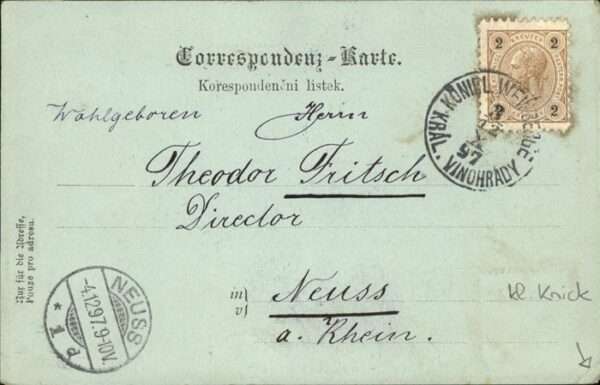 2 KREUZER 2
2 2
Correspondenz-Karte.
Korespondenční lístek.
KÖNIGL. WEINBERGE
KRÁL. VINOHRADY
97
Wohlgeboren Herrn
Theodor Fritsch
Director
in
v
Neuss
a. Rhein.
Nur für die Adresse,
Pouze pro adresu.
NEUSS
-4.12.97.9-10V.
* 1 P
kl. Knick